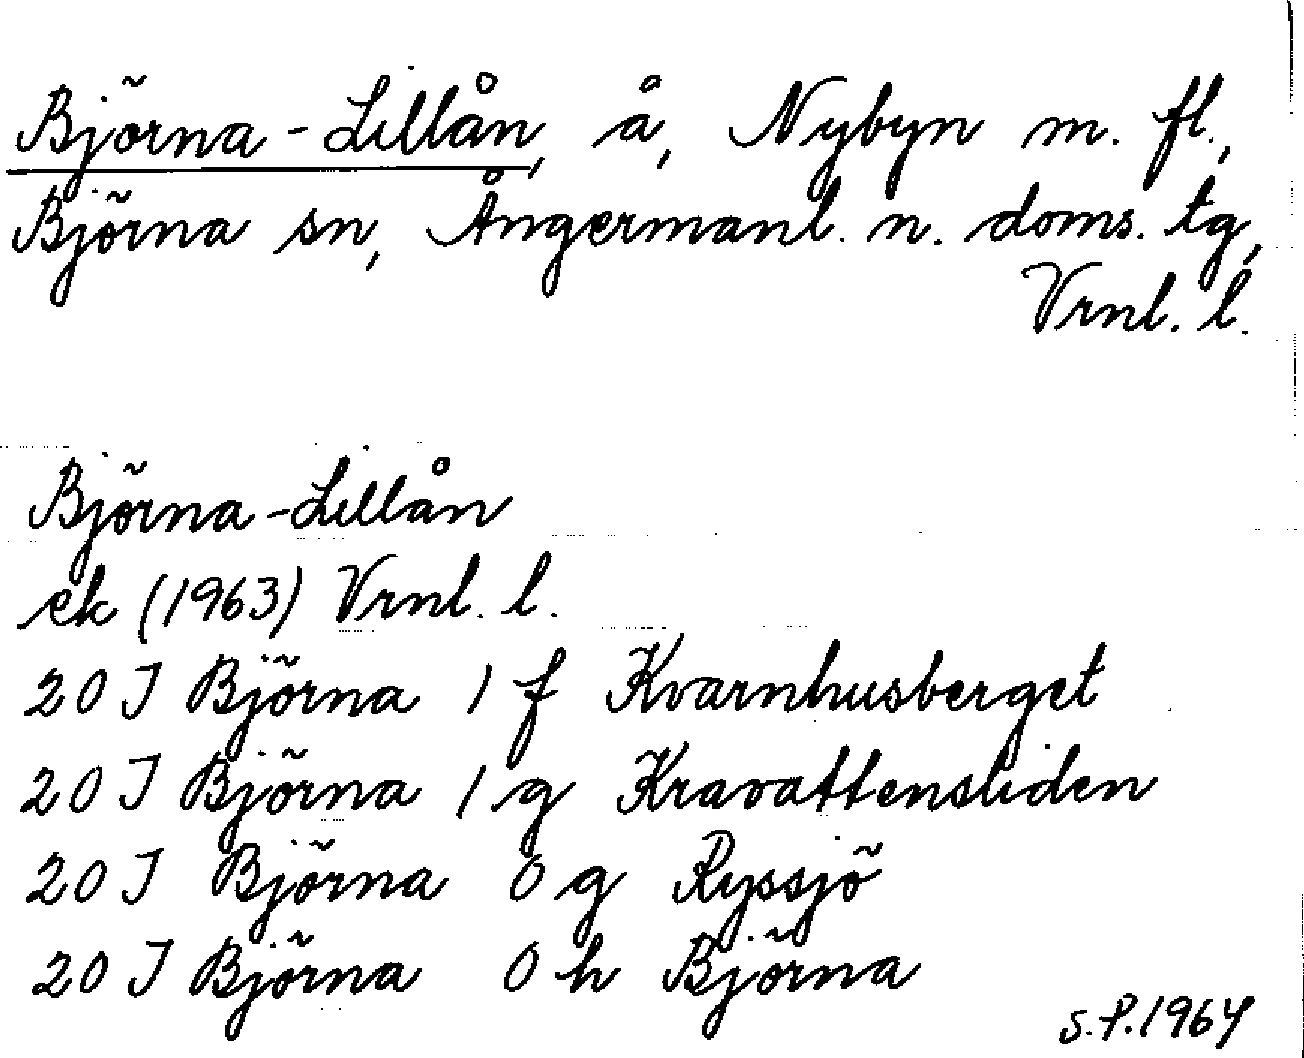 Björna-Lillån, å, Nybyn m. fl.,
Björna sn, Ångermanl. n. doms. tg,
Vrnl. l.
Björna-Lillån
ek (1963) Vrnl. l.
20 J Björna 1 f Kvarnhusberget
20 J Björna 1 g Kravattensliden
20 J Björna 0 g Ryssjö
20 J Björna 0 h Björna
S.P. 1964